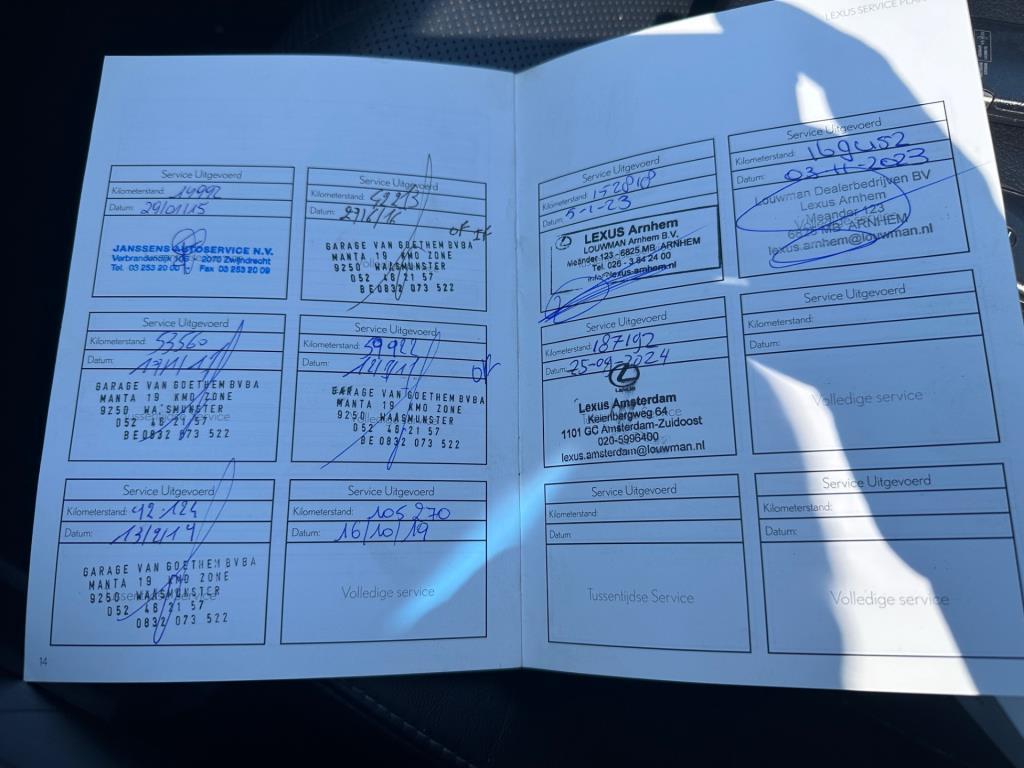 LEXUS SERVICE PLAN
Service Uitgevoerd
Kilometerstand: 14992
Datum: 29/01/15
JANSSENS AUTOSERVICE N.V.
Verbrandendijk 2070 Zwijndrecht
Tel. 03 253 20 00 Fax 03 253 20 09
Service Uitgevoerd
Kilometerstand:
Datum:
GARAGE VAN GOETHEM BVBA
MANTA 19 KMO ZONE
9250 WAASMUNSTER
052 46 21 57
BE0832 073 522
Service Uitgevoerd
Kilometerstand: 53560
Datum:
GARAGE VAN GOETHEM BVBA
MANTA 19 KMO ZONE
9250 WAASMUNSTER
052 46 21 57
BE0832 073 522
Service Uitgevoerd
Kilometerstand: 59922
Datum:
GARAGE VAN GOETHEM BVBA
MANTA 19 KMO ZONE
9250 WAASMUNSTER
052 46 21 57
BE0832 073 522
Service Uitgevoerd
Kilometerstand:
Datum:
GARAGE VAN GOETHEM BVBA
MANTA 19 KMO ZONE
9250 WAASMUNSTER
052 46 21 57
0832 073 522
Service Uitgevoerd
Kilometerstand: 105270
Datum: 16/10/19
Volledige service
14
Service Uitgevoerd
Kilometerstand: 152818
Datum: 5-1-23
LEXUS Arnhem
LOUWMAN Arnhem B.V.
Meander 123 - 6825 MB ARNHEM
Tel. 026 - 3 84 24 00
info@lexus-arnhem.nl
Service Uitgevoerd
Kilometerstand: 169452
Datum: 03-11-2023
Louwman Dealerbedrijven BV
Lexus Arnhem
Meander 123
6825 MB ARNHEM
lexus.arnhem@louwman.nl
Service Uitgevoerd
Kilometerstand: 187192
Datum: 25-09-2024
LEXUS
Lexus Amsterdam
Keienbergweg 64
1101 GC Amsterdam-Zuidoost
020-5996400
lexus.amsterdam@louwman.nl
Service Uitgevoerd
Kilometerstand:
Datum:
Volledige service
Service Uitgevoerd
Kilometerstand:
Datum:
Tussentijdse Service
Service Uitgevoerd
Kilometerstand:
Datum:
Volledige service